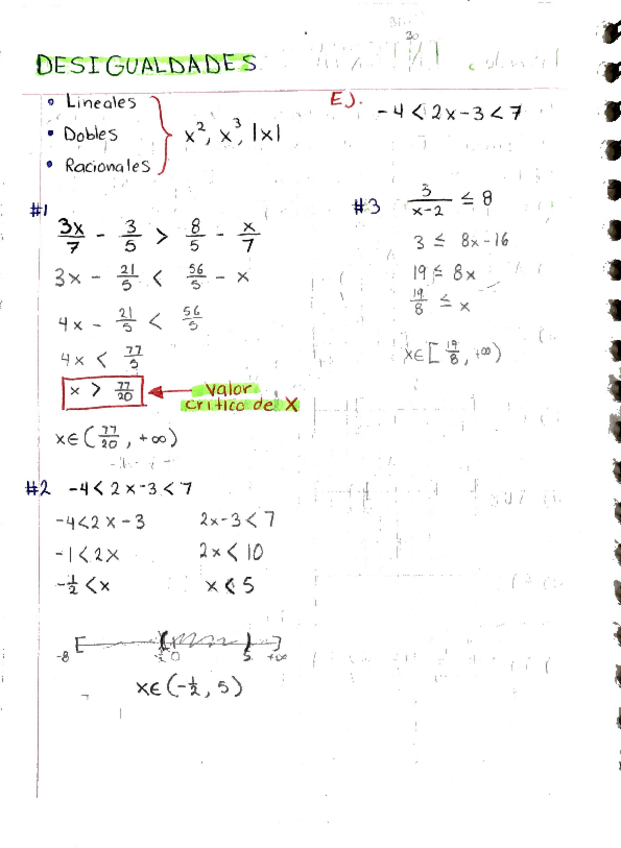 DESIGUALDADES
• Lineales
• Dobles
• Racionales
x², x³, |x|
EJ.
-4 < 2x - 3 < 7
#1
3x/7 - 3/5 > 8/5 - x/7
3x - 21/5 < 56/5 - x
4x - 21/5 < 56/5
4x < 77/5
x > 77/20 ← Valor critico de X
x∈(77/20, +∞)
#2 -4 < 2x - 3 < 7
-4 < 2x - 3 2x - 3 < 7
-1 < 2x 2x < 10
-1/2 < x x < 5
-8 -1/2 0 5 +∞
x∈(-1/2, 5)
#3 3/(x-2) ≤ 8
3 ≤ 8x - 16
19 ≤ 8x
19/8 ≤ x
x∈[19/8, +∞)